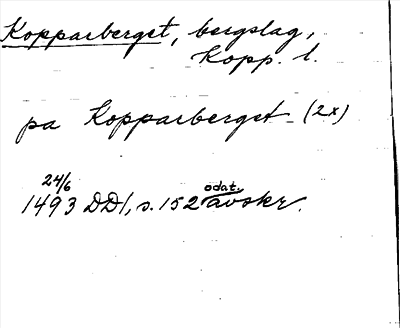 Kopparberget, bergslag,
Kopp. l.
pa Kopparberget (2x)
24/6
1493 DD1, s. 152 odat. avskr.